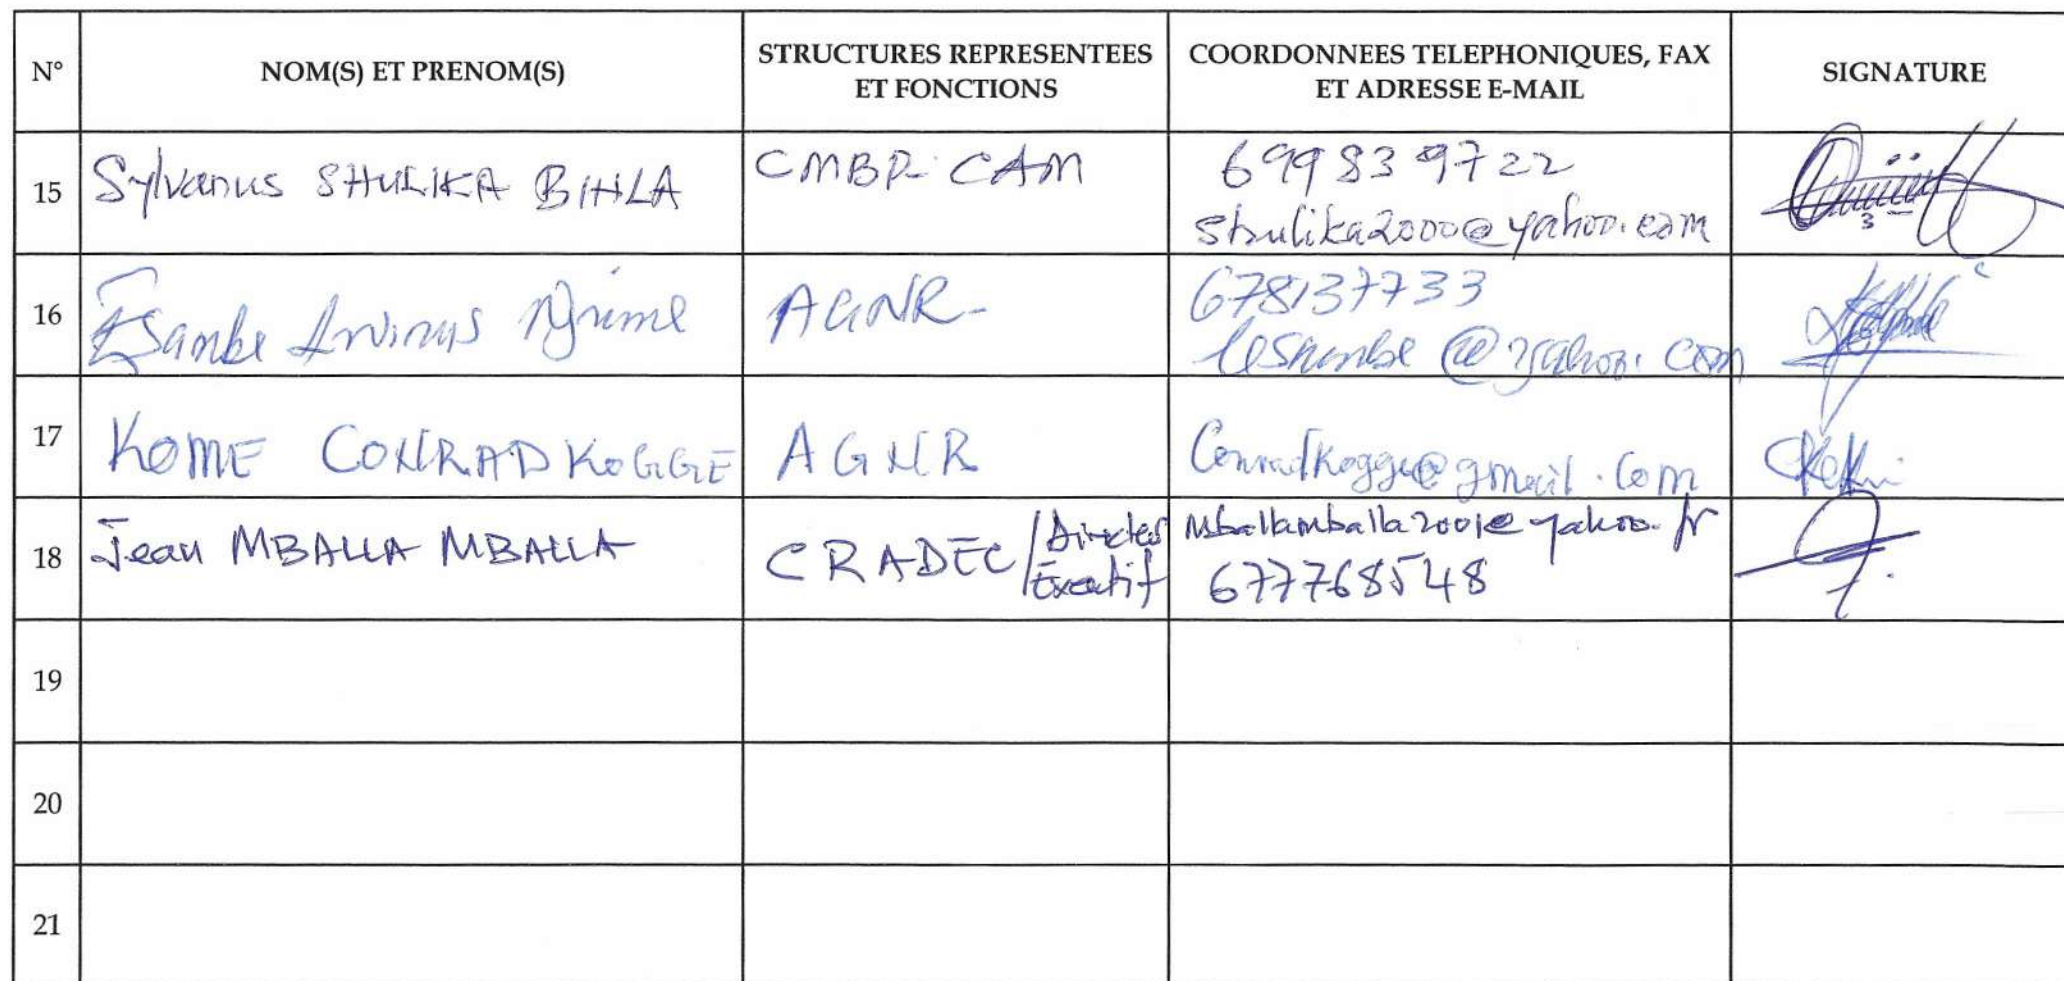 N° NOM(S) ET PRENOM(S) STRUCTURES REPRESENTEES ET FONCTIONS COORDONNEES TELEPHONIQUES, FAX ET ADRESSE E-MAIL SIGNATURE
15 Sylvanus SHULIKA BIHLA CMBP-CAM 699839722
shulika2000@yahoo.com
16 AGNR- 678137733
@yahoo.com
17 KOME CONRAD KOGGE AGNR Conradkogge@gmail.com
18 Jean MBALLA MBALLA CRADEC/Directeur Executif mballamballa2001@yahoo.fr
677768548
19
20
21